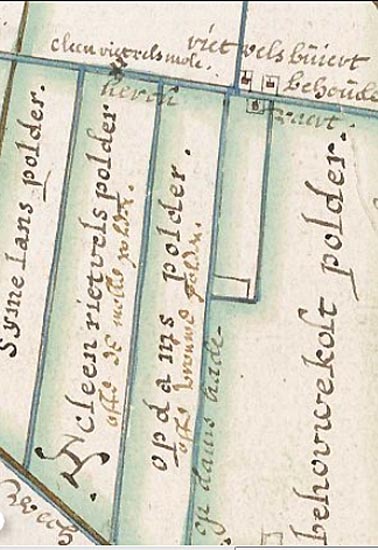 cleen rietvels mole.
riet vels buiert
behoude
vaert.
syme lans polder.
cleen rietvels polder
ofte de molle polder.
opdams polder.
ofte brouwe polder.
opdams kade
behouwekolt polder.